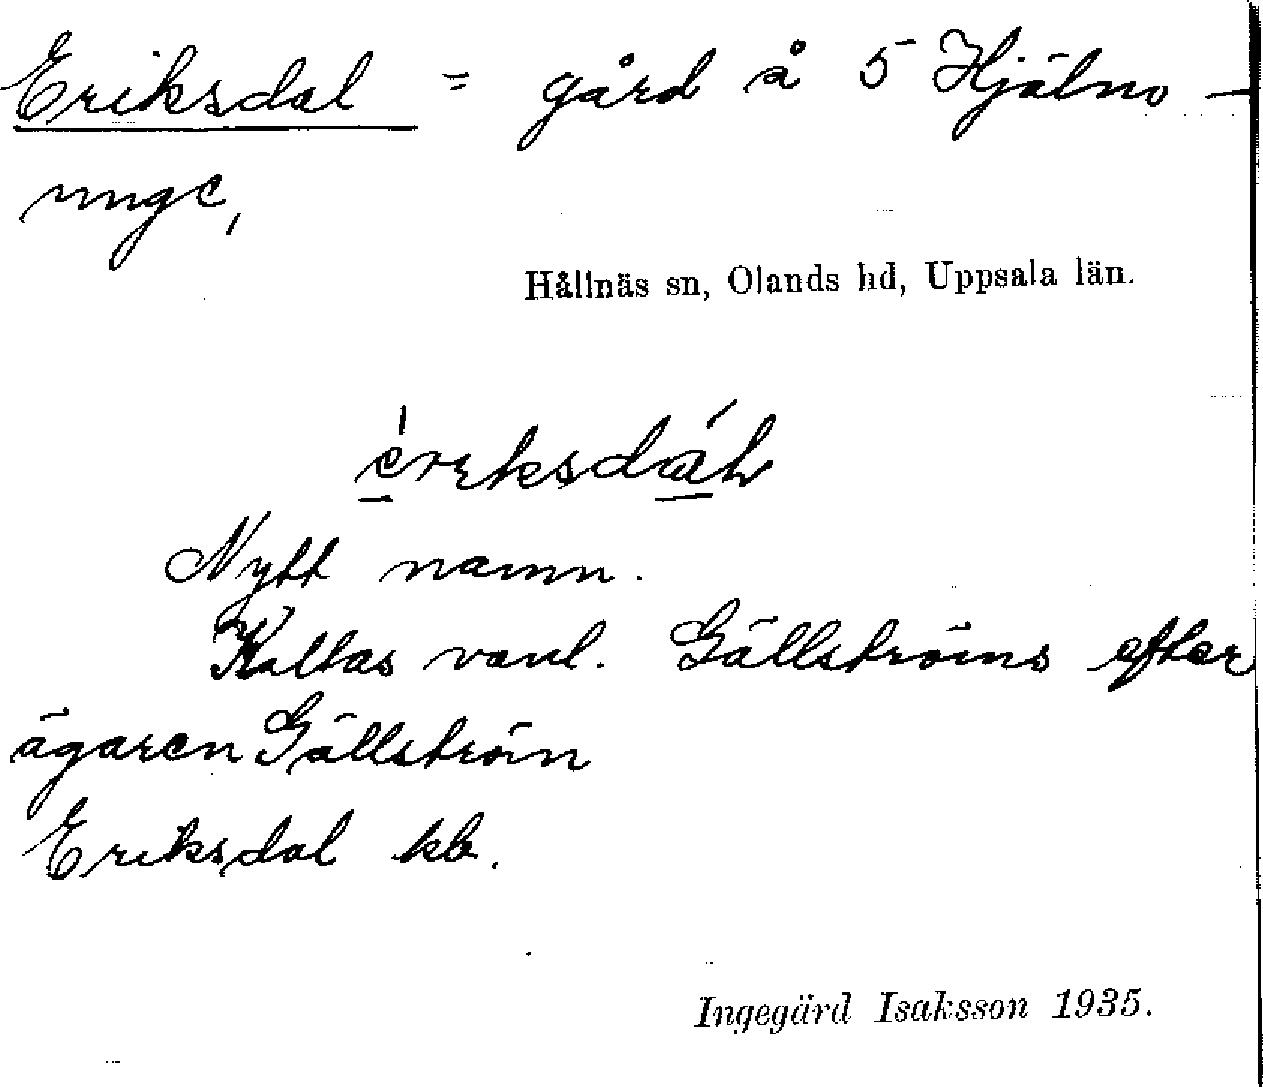 Eriksdal = gård å 5 Hjälm-
unge,
Hållnäs sn, Olands hd, Uppsala län.
Nytt namn.
Kallas vanl. Gällströms efter
ägaren Gällström
Eriksdal kb.
Ingegärd Isaksson 1935.